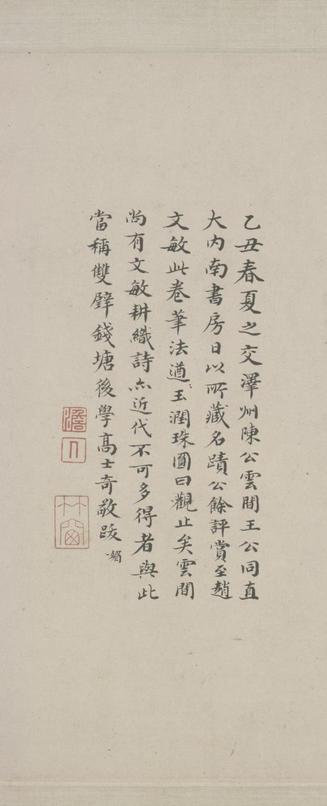 乙丑春夏之交澤州陳公雲間王公同直
大内南書房日以所藏名蹟公餘評賞至趙
文敏此卷筆法遒玉潤珠圓曰觀止矣雲間
尚有文敏耕織詩亦近代不可多得者與此
當稱雙璧錢塘後學高士奇敬跋
澹人
竹窗